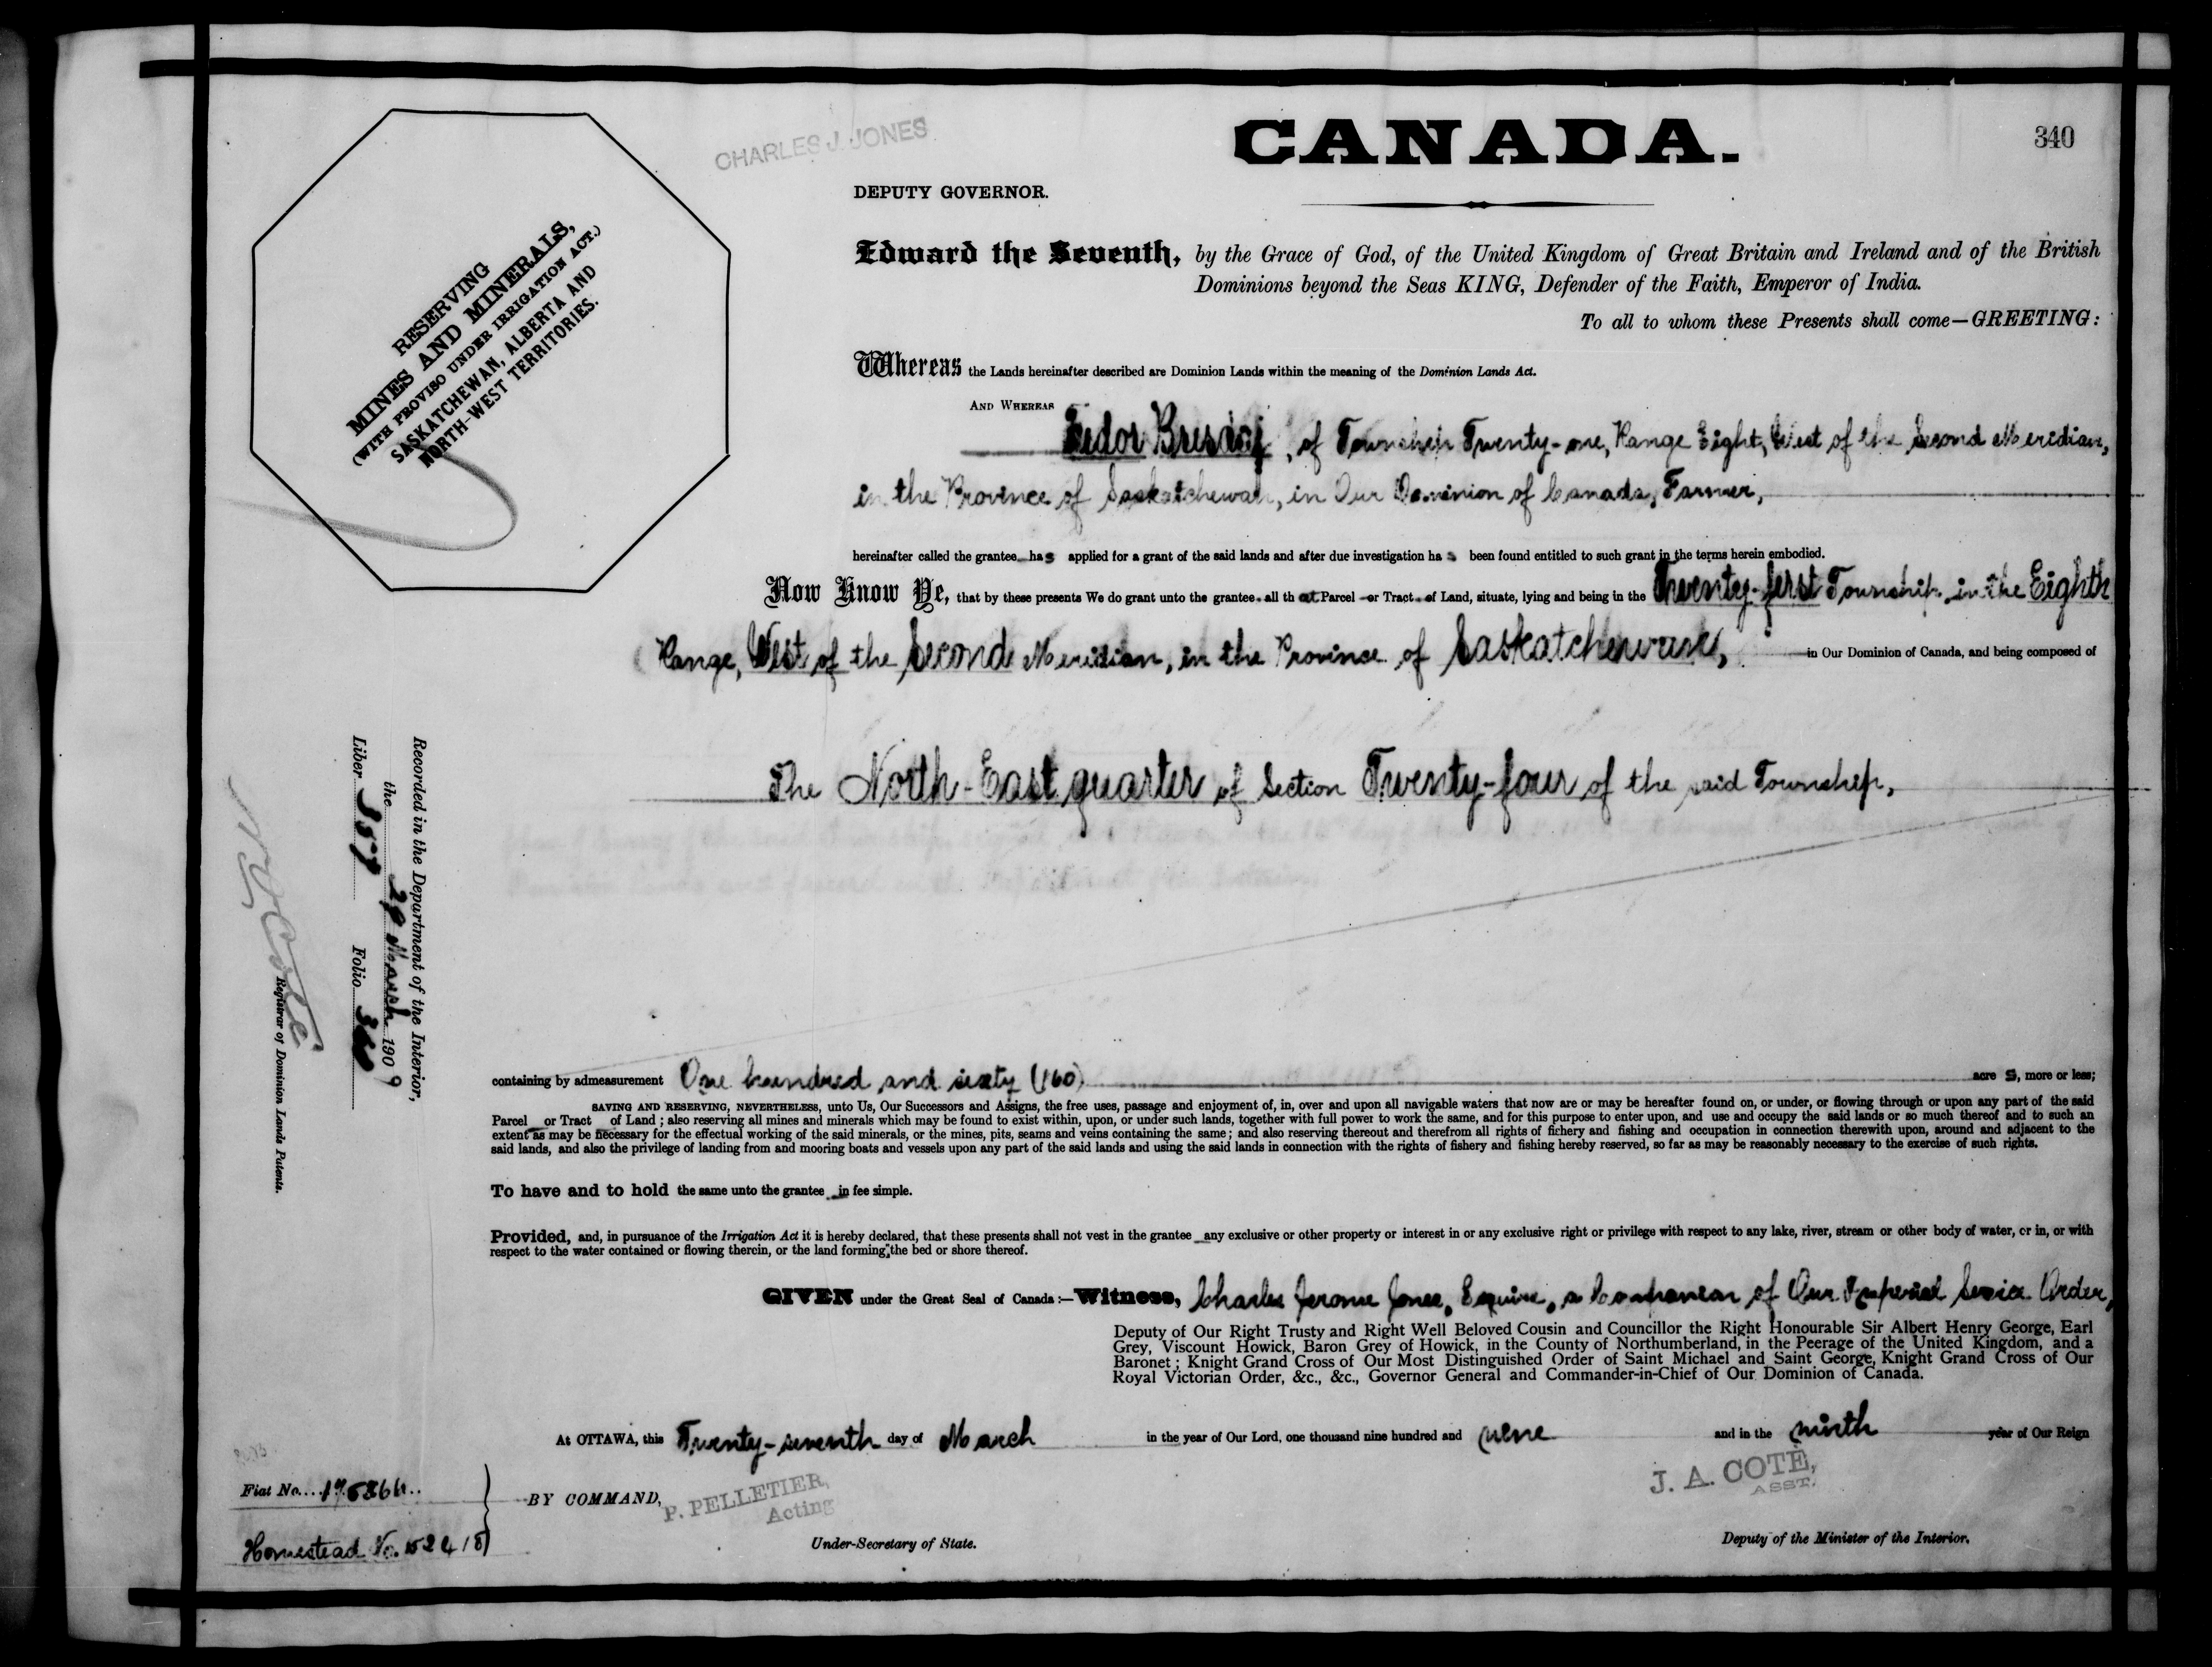 CANADA.
340
CHARLES J. JONES
DEPUTY GOVERNOR.
RESERVING
MINES AND MINERALS,
(WITH PROVISO UNDER IRRIGATION ACT.)
SASKATCHEWAN, ALBERTA AND
NORTH-WEST TERRITORIES.
Edward the Seventh, by the Grace of God, of the United Kingdom of Great Britain and Ireland and of the British
Dominions beyond the Seas KING, Defender of the Faith, Emperor of India.
To all to whom these Presents shall come—GREETING:
Whereas the Lands hereinafter described are Dominion Lands within the meaning of the Dominion Lands Act.
AND WHEREAS
Fedor, of Township Twenty-one, Range Eight, West of the Second Meridian,
in the Province of Saskatchewan, in Our Dominion of Canada, Farmer,
hereinafter called the grantee has applied for a grant of the said lands and after due investigation has been found entitled to such grant in the terms herein embodied.
Now Know Ye, that by these presents We do grant unto the grantee all that Parcel or Tract of Land, situate, lying and being in the Twenty-first Township, in the Eighth
Range, West of the Second Meridian, in the Province of Saskatchewan, in Our Dominion of Canada, and being composed of
The North-East quarter of Section Twenty-four of the said Township,
containing by admeasurement One hundred and sixty (160) acres, more or less;
SAVING AND RESERVING, NEVERTHELESS, unto Us, Our Successors and Assigns, the free uses, passage and enjoyment of, in, over and upon all navigable waters that now are or may be hereafter found on, or under, or flowing through or upon any part of the said
Parcel or Tract of Land; also reserving all mines and minerals which may be found to exist within, upon, or under such lands, together with full power to work the same, and for this purpose to enter upon, and use and occupy the said lands or so much thereof and to such an
extent as may be necessary for the effectual working of the said minerals, or the mines, pits, seams and veins containing the same; and also reserving thereout and therefrom all rights of fishery and fishing and occupation in connection therewith upon, around and adjacent to the
said lands, and also the privilege of landing from and mooring boats and vessels upon any part of the said lands and using the said lands in connection with the rights of fishery and fishing hereby reserved, so far as may be reasonably necessary to the exercise of such rights.
To have and to hold the same unto the grantee in fee simple.
Provided, and, in pursuance of the Irrigation Act it is hereby declared, that these presents shall not vest in the grantee any exclusive or other property or interest in or any exclusive right or privilege with respect to any lake, river, stream or other body of water, or in, or with
respect to the water contained or flowing therein, or the land forming the bed or shore thereof.
GIVEN under the Great Seal of Canada:—Witness, Charles Jerome Jones, Esquire, a Companion of Our Imperial Service Order,
Deputy of Our Right Trusty and Right Well Beloved Cousin and Councillor the Right Honourable Sir Albert Henry George, Earl
Grey, Viscount Howick, Baron Grey of Howick, in the County of Northumberland, in the Peerage of the United Kingdom, and a
Baronet; Knight Grand Cross of Our Most Distinguished Order of Saint Michael and Saint George, Knight Grand Cross of Our
Royal Victorian Order, &c., &c., Governor General and Commander-in-Chief of Our Dominion of Canada.
At OTTAWA, this Twenty-seventh day of March in the year of Our Lord, one thousand nine hundred and nine and in the ninth year of Our Reign
BY COMMAND,
P. PELLETIER,
Acting
Under-Secretary of State.
J. A. COTE,
ASST.
Deputy of the Minister of the Interior.
Fiat No.
Homestead No.
Recorded in the Department of the Interior,
the 29 March 1909
Liber 357 Folio 340
N.O. Coté
Registrar of Dominion Lands Patents.